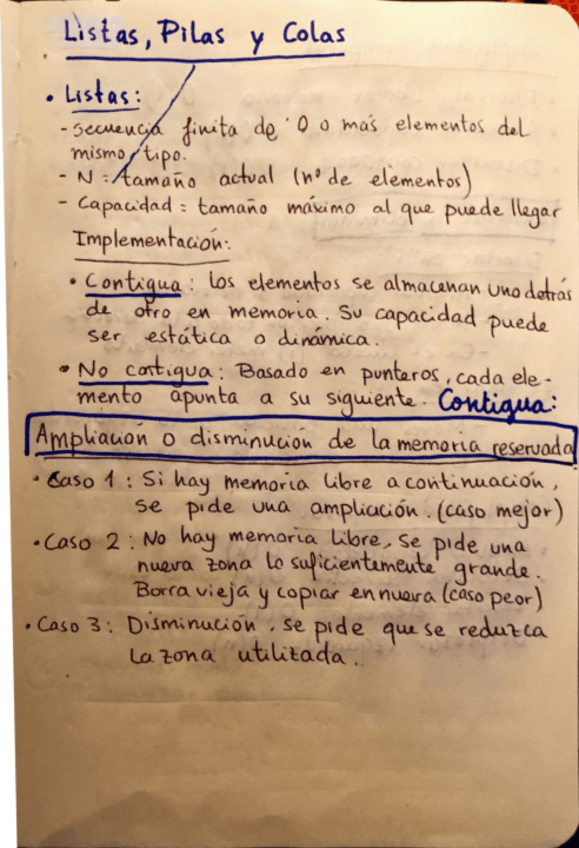 Listas, Pilas y Colas
• Listas:
- Secuencia finita de 0 o más elementos del
mismo tipo.
- N = tamaño actual (nº de elementos)
- Capacidad = tamaño máximo al que puede llegar
Implementación:
• Contigua: Los elementos se almacenan uno detrás
de otro en memoria. Su capacidad puede
ser estática o dinámica.
• No contigua: Basado en punteros, cada ele-
mento apunta a su siguiente. Contigua:
Ampliación o disminución de la memoria reservada
• Caso 1: Si hay memoria libre a continuación,
se pide una ampliación. (caso mejor)
• Caso 2: No hay memoria libre, se pide una
nueva zona lo suficientemente grande.
Borra vieja y copiar en nueva (caso peor)
• Caso 3: Disminución, se pide que se reduzca
la zona utilizada.